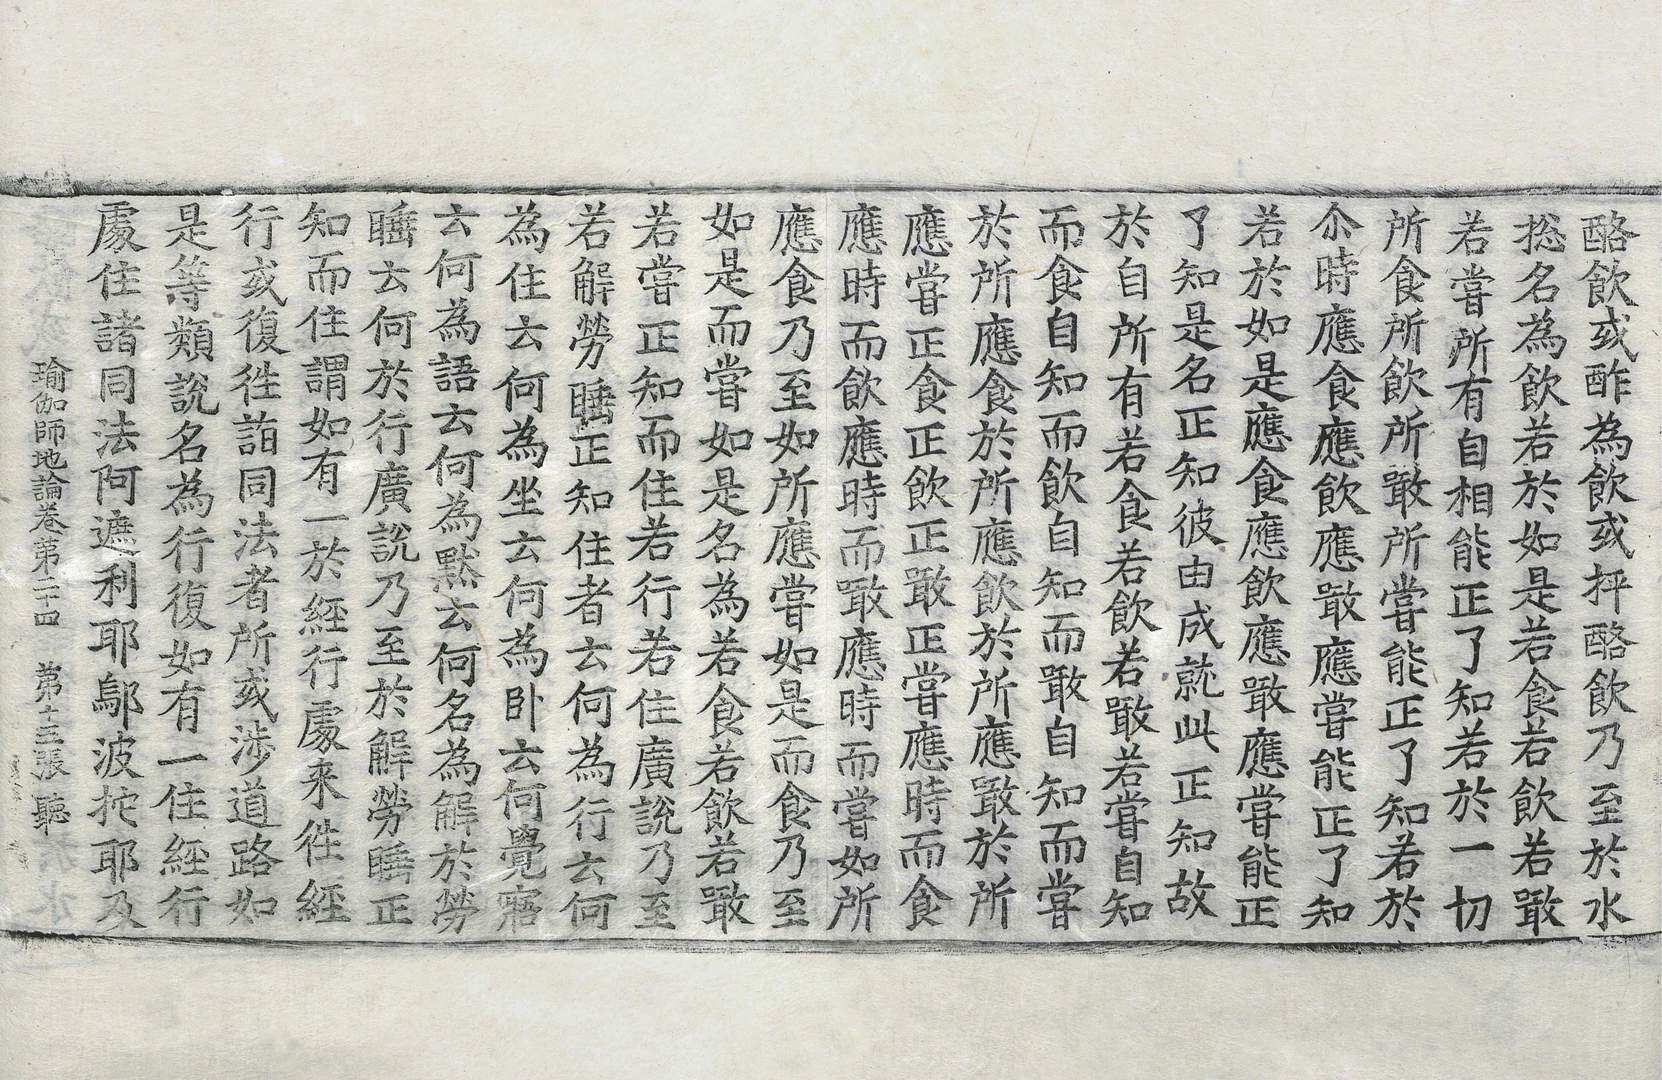 酪飲或酢為飲或抨酪飲乃至於水
捴名為飲若於如是若食若飲若噉
若嘗所有自相能正了知若於一切
所食所飲所噉所嘗能正了知若於
尒時應食應飲應噉應嘗能正了知
若於如是應食應飲應噉應嘗能正
了知是名正知彼由成就此正知故
於自所有若食若飲若噉若嘗自知
而食自知而飲自知而噉自知而嘗
於所應食於所應飲於所應噉於所
應嘗正食正飲正噉正嘗應時而食
應時而飲應時而噉應時而嘗如所
應食乃至如所應嘗如是而食乃至
如是而嘗如是名為若食若飲若噉
若嘗正知而住若行若住廣說乃至
若解勞睡正知住者云何為行云何
為住云何為坐云何為卧云何覺寤
云何為語云何為默云何名為解於勞
睡云何於行廣說乃至於解勞睡正
知而住謂如有一於經行處来徃經
行或復徃詣同法者所或涉道路如
是等類說名為行復如有一住經行
處住諸同法阿遮利耶鄔波拕耶及
瑜伽師地論卷第二十四 第十三張 聽